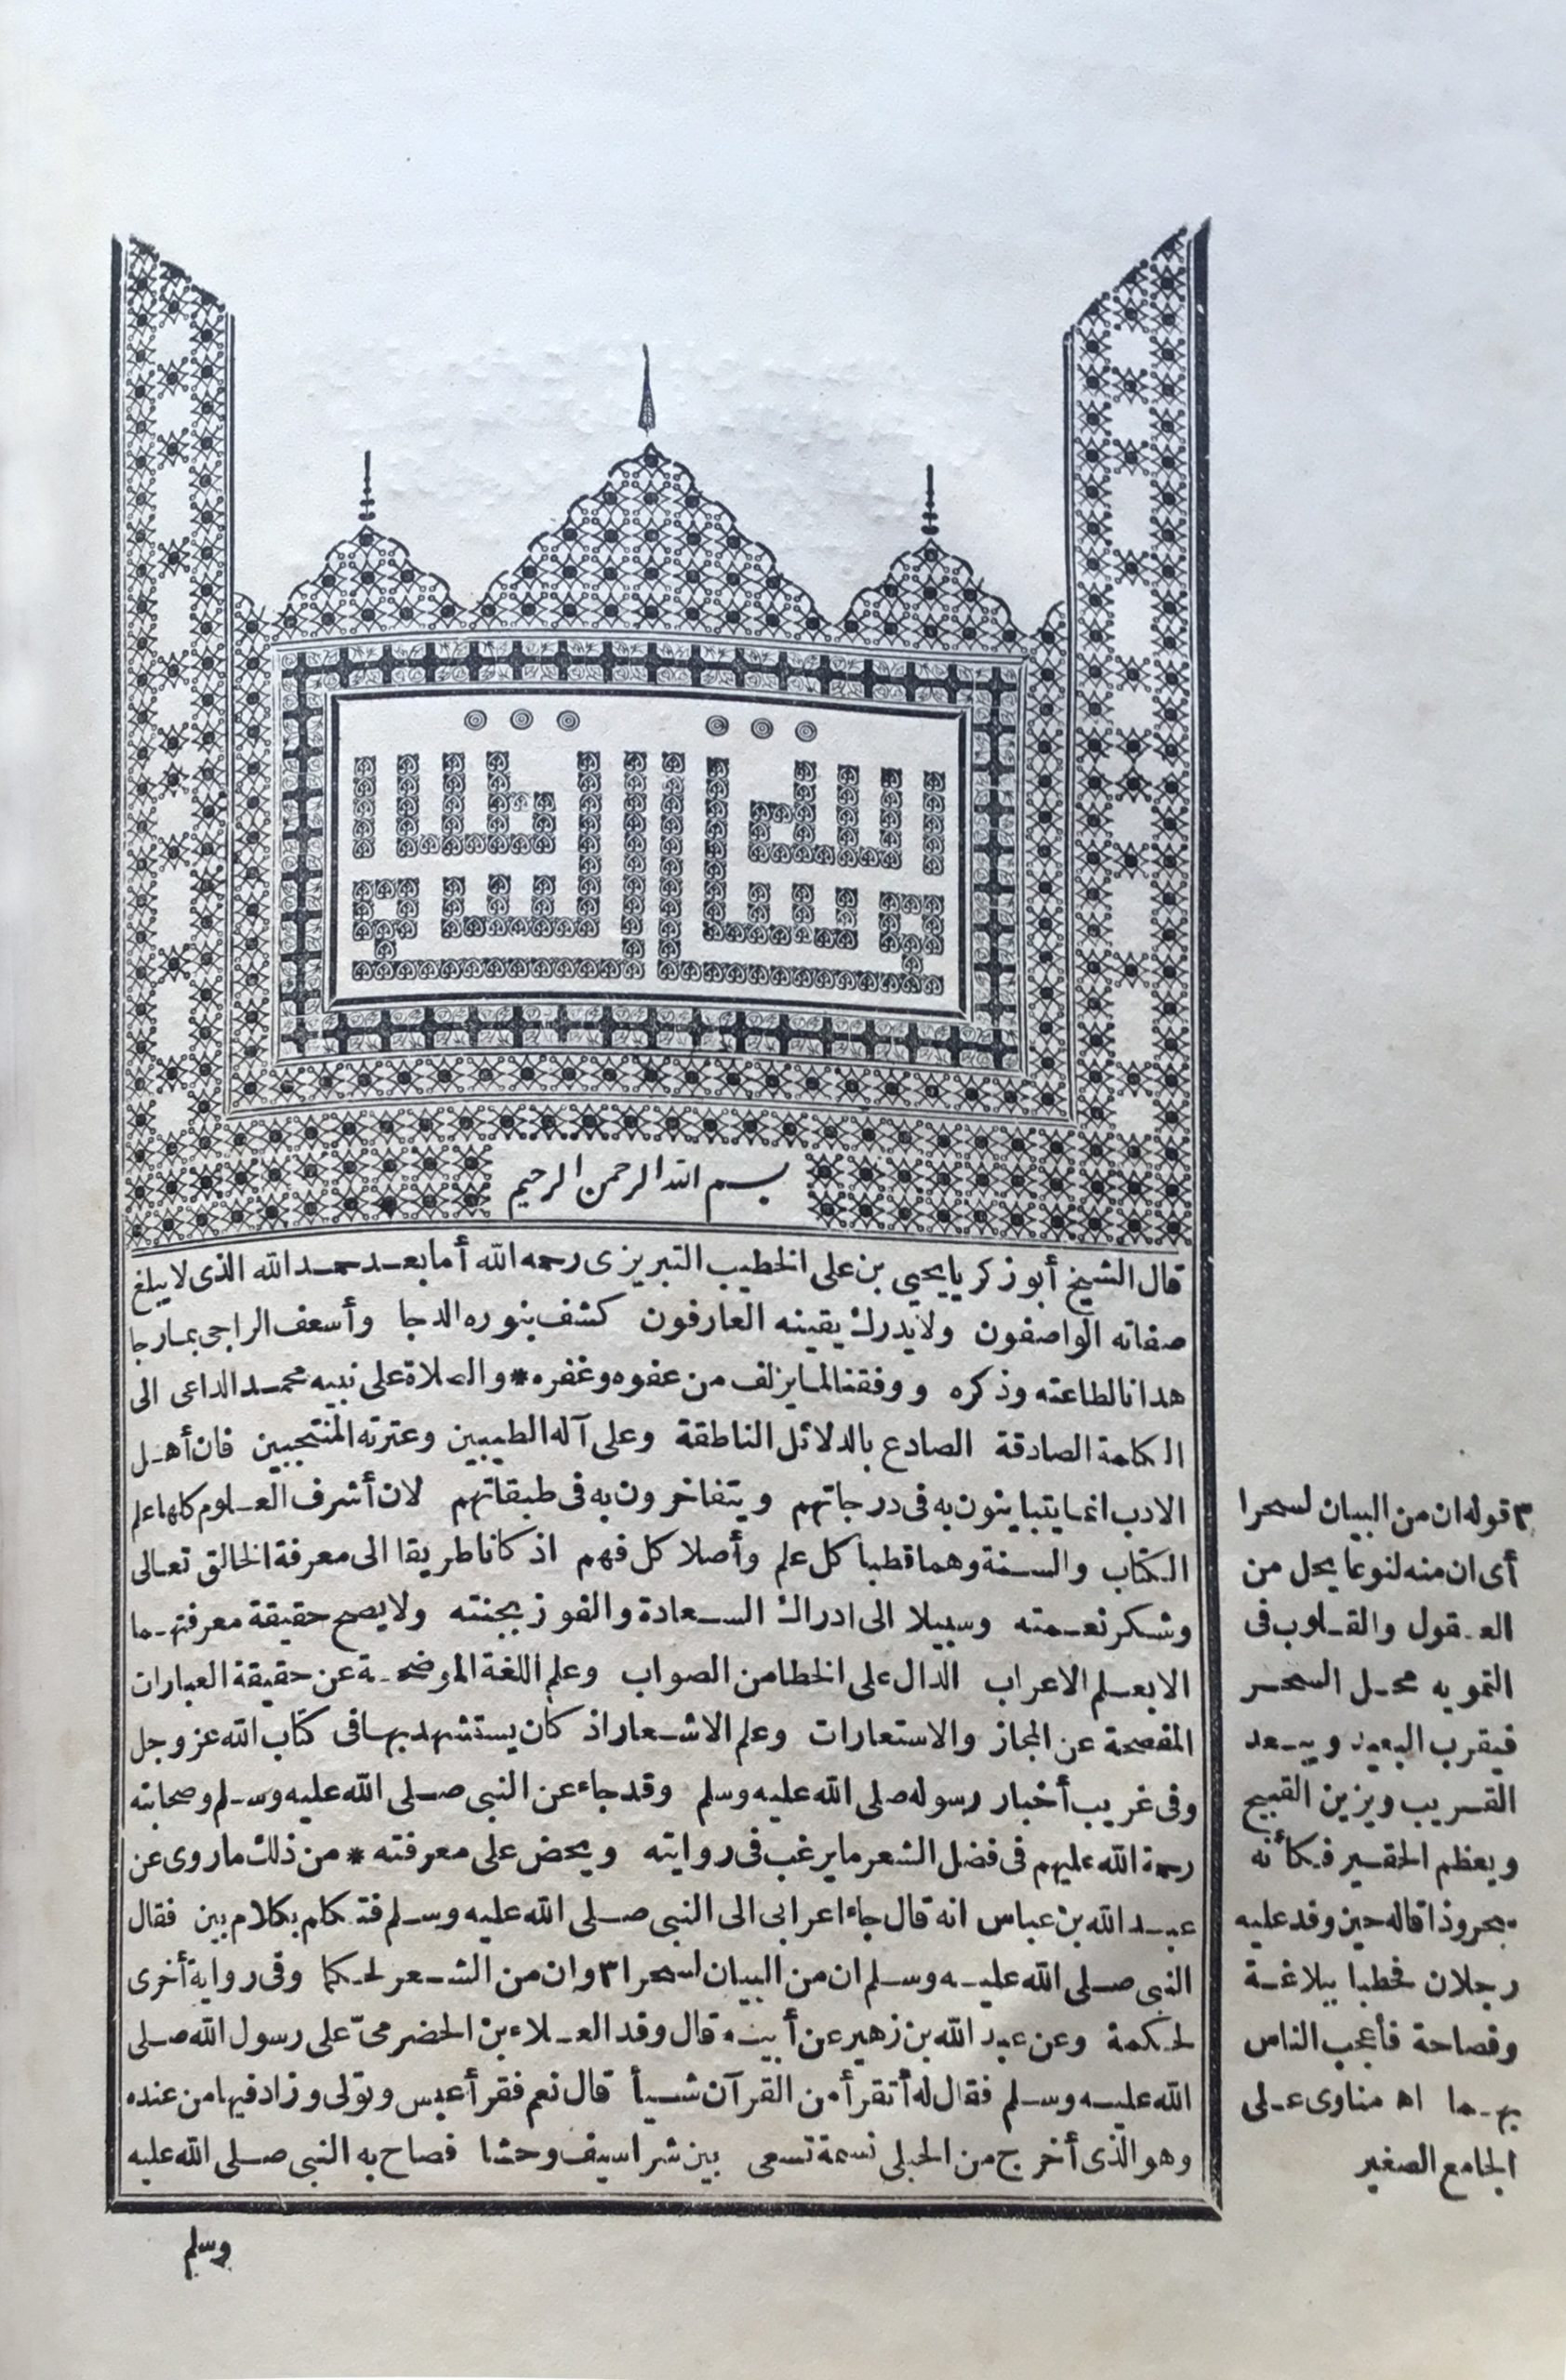 بسم الله الرحمن الرحيم
قال الشيخ أبو زكريا يحيى بن على الخطيب التبريزى رحمه الله أما بعد حمد الله الذى لا يبلغ
صفاته الواصفون ولا يدرك يقينه العارفون كشف بنوره الدجا وأسعف الراجى بما رجا
هدانا لطاعته وذكره ووفقنا لما يزلف من عفوه وغفره * والصلاة على نبيه محمد الداعى الى
الكلمة الصادقة الصادع بالدلائل الناطقة وعلى آله الطيبين وعترته المنتجبين فان أهل
الادب انما يتباينون به فى درجاتهم ويتفاخرون به فى طبقاتهم لان أشرف العلوم كلها علم
الكتاب والسنة وهما قطبا كل علم وأصلا كل فهم اذ كانا طريقا الى معرفة الخالق تعالى
وشكر نعمته وسبيلا الى ادراك السعادة والفوز بجنته ولا يصح حقيقة معرفتهما
الا بعلم الاعراب الدال على الخطا من الصواب وعلم اللغة الموضحة عن حقيقة العبارات
المفصحة عن المجاز والاستعارات وعلم الاشعار اذ كان يستشهد بها فى كتاب الله عز وجل
وفى غريب أخبار رسوله صلى الله عليه وسلم وقد جاء عن النبى صلى الله عليه وسلم وصحابته
رحمة الله عليهم فى فضل الشعر ما يرغب فى روايته ويحض على معرفته * من ذلك ما روى عن
عبد الله بن عباس انه قال جاء اعرابى الى النبى صلى الله عليه وسلم فتكلم بكلام بين فقال
النبى صلى الله عليه وسلم ان من البيان لسحرا ٣ وان من الشعر لحكما وفى رواية أخرى
لحكمة وعن عبد الله بن زهير عن أبيه قال وفد العلاء بن الحضرمىّ على رسول الله صلى
الله عليه وسلم فقال له أتقرأ من القرآن شيأ قال نعم فقرأ عبس وتولى وزاد فيها من عنده
وهو الذى أخرج من الحبلى نسمة تسعى بين شراسيف وحشا فصاح به النبى صلى الله عليه
وسلم
٣ قوله ان من البيان لسحرا
أى ان منه لنوعا يحل من
العقول والقلوب فى
التمويه محل السحر
فيقرب البعيد ويبعد
القريب ويزين القبيح
ويعظم الحقير فكأنه
سحر وذا قاله حين وفد عليه
رجلان فخطبا ببلاغة
وفصاحة فأعجب الناس
بهما اه مناوى على
الجامع الصغير